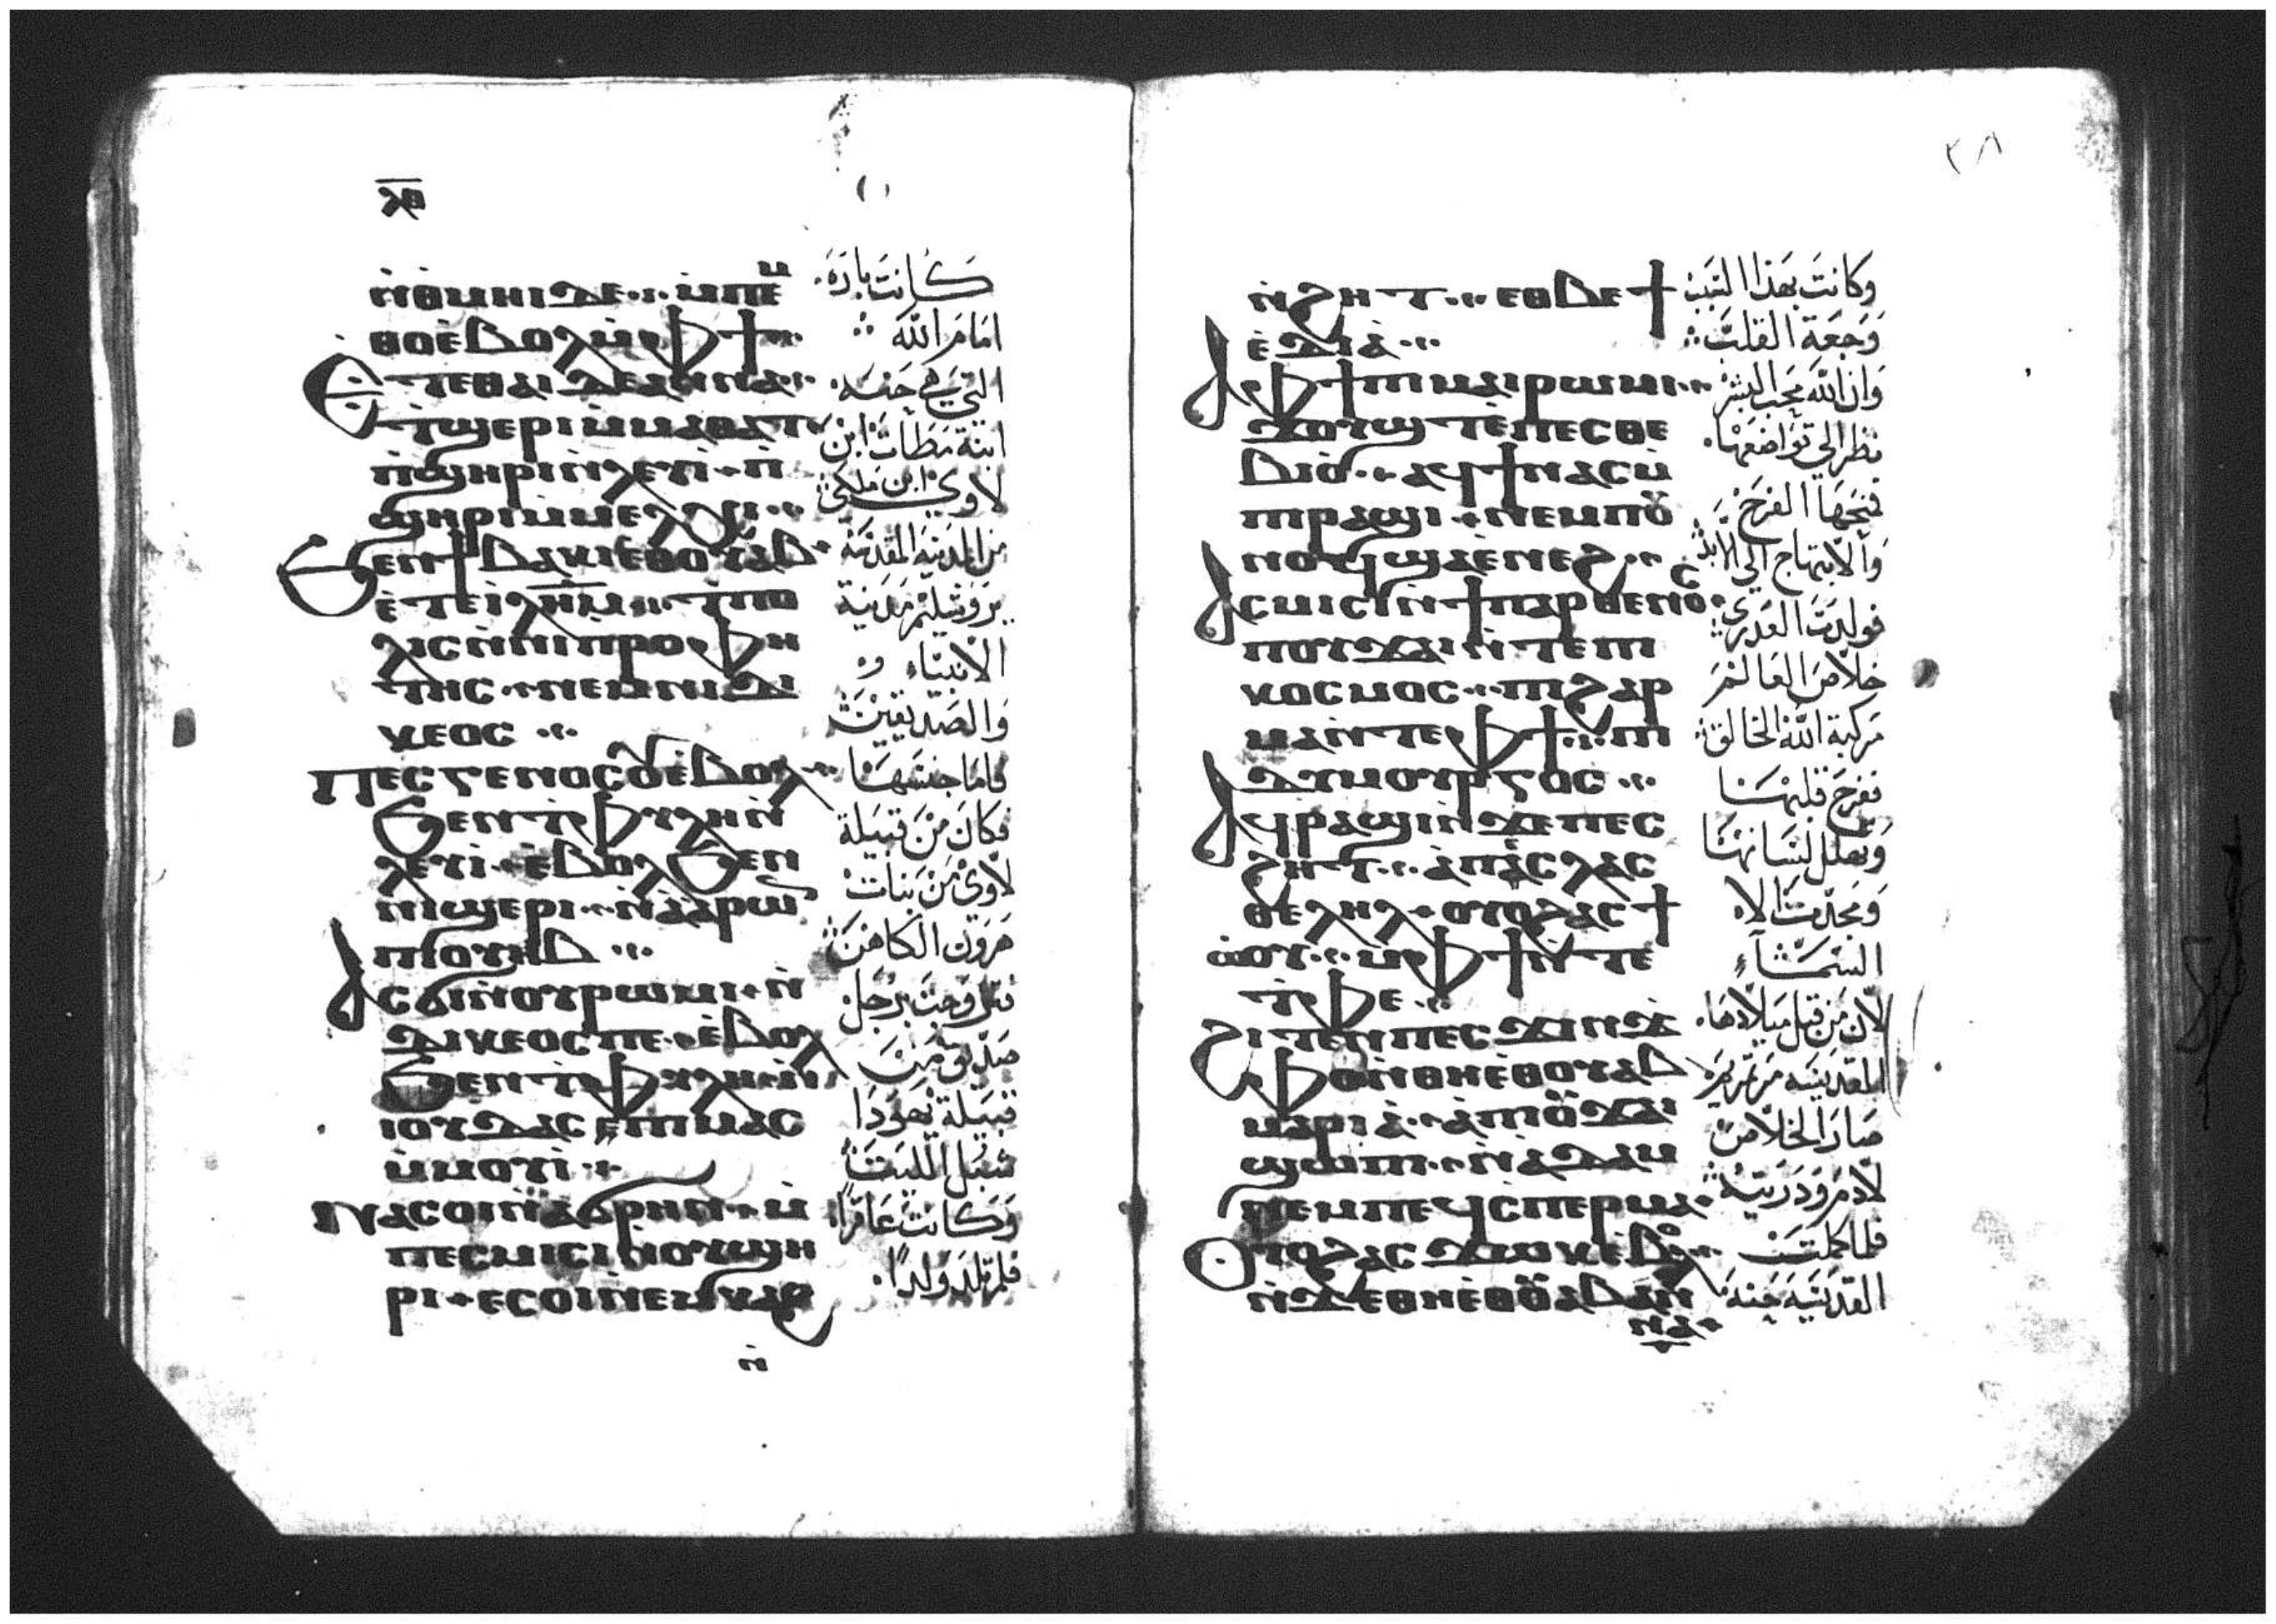 ⲗⲏ
ⲛ̀ⲑⲙⲏⲓ ⲇⲉ ⲙ̀ⲡⲉⲙ̀
ⲑⲟ ⲉ̀ⲃⲟⲗ ⲙ̀ⲫϯ
Ⲉ̀ⲧⲉ ⲑⲁⲓ ⲇⲉ ⲁⲛⲛⲁ
ⲧ̀ϣⲉⲣⲓ ⲙ̀ⲙⲁⲑⲁⲧ
ⲡ̀ϣⲏⲣⲓ ⲛ̀ⲗⲉⲩⲓ̀ ⲡ̀
ϣⲏⲣⲓ ⲙ̀ⲙⲉⲗⲭⲓ
Ϧⲉⲛ ϯⲃⲁⲕⲓ ⲉⲑⲟⲩⲁⲃ
ⲉ̀ⲧⲉ ⲓ̀ⲗⲏⲙ ⲧ̀ⲡⲟ
ⲗⲓⲥ ⲛ̀ⲛⲓⲡⲣⲟⲫⲏ
ⲧⲏⲥ ⲛⲉⲙ ⲛⲓⲇⲓ
ⲕⲉⲟⲥ
Ⲡⲉⲥⲅⲉⲛⲟⲥ ⲟⲩⲉ̀ⲃⲟⲗ
ϧⲉⲛ ⲧ̀ⲫⲩⲗⲏ ⲛ̀
ⲗⲉⲩⲓ̀ ⲉ̀ⲃⲟⲗ ϧⲉⲛ
ⲛⲓϣⲉⲣⲓ ⲛ̀ⲁ̀ⲁⲣⲱⲛ
ⲡⲓⲟⲩⲏⲃ
Ⲁⲥϭⲓ ⲛ̀ⲟⲩⲣⲱⲙⲓ ⲛ̀
ⲇⲓⲕⲉⲟⲥ ⲡⲉ ⲉ̀ⲃⲟⲗ
ϧⲉⲛ ⲧ̀ⲫⲩⲗⲏ ⲛ̀
ⲓⲟⲩⲇⲁⲥ ⲡⲓⲙⲁⲥ
ⲙ̀ⲙⲟⲩⲓ̀
Ⲛⲁⲥⲟⲓ ⲛ̀ⲁϭⲣⲏⲛ ⲙ̀
ⲡⲉⲥⲙⲓⲥⲓ ⲛ̀ⲟⲩϣⲏ
ⲣⲓ ⲉⲥⲟⲓ ⲛⲉⲙⲕⲁϩ
ⲛ̀
كانت باره
امام الله
التي هي حنه
ابنة مطات ابن
لاوي ابن ملكي
من المدينة المقدسة
يروشليم مدينة
الأنبياء
والصديقين
فاما جنسها
فكان من قبيلة
لاوي من بنات
هرون الكاهن
فتزوجت برجل
صديق من
قبيلة يهودا
شبل الليث
وكانت عاقرا
فلم تلد ولدا
٣٨
ⲛ̀ϩⲏⲧ ⲉⲑⲃⲉ ϯ
ⲉⲧⲓⲁ̀
Ⲁⲫϯ ⲡⲓⲙⲁⲓⲣⲱⲙⲓ
ϫⲟⲩϣⲧ ⲉ̀ⲡⲉⲥⲑⲉ
ⲃⲓⲟ̀ ⲁϥϯ ⲛⲁⲥ ⲙ̀
ⲡⲓⲣⲁϣⲓ ⲛⲉⲙ ⲡⲟⲩ
ⲛⲟϥ ϣⲁ ⲉ̀ⲛⲉϩ
Ⲁⲥⲙⲓⲥⲓ ⲛ̀ϯⲡⲁⲣⲑⲉⲛⲟⲥ
ⲡⲟⲩϫⲁⲓ ⲛ̀ⲧⲉ ⲡⲓ
ⲕⲟⲥⲙⲟⲥ ⲡⲓϩⲁⲣ
ⲙⲁ ⲛ̀ⲧⲉ ⲫϯ ⲡⲓ
ⲇⲩⲙⲟⲩⲣⲅⲟⲥ
Ⲁϥⲣⲁϣⲓ ⲛ̀ϫⲉ ⲡⲉⲥ
ϩⲏⲧ ⲁ̀ ⲡⲉⲥⲗⲁⲥ
ⲑⲉⲗⲏⲗ ⲟⲩⲟϩ ⲁⲥϯ
ⲱ̀ⲟⲩ ⲙ̀ⲫϯ ⲛ̀ⲧⲉ
ⲧ̀ⲫⲉ
ϩⲓⲧⲉⲛ ⲡⲉⲥϫⲓⲛϫ
ⲫⲟ ⲛ̀ⲑⲏⲉ̀ⲑⲟⲩⲁⲃ
ⲙⲁⲣⲓⲁ̀ ⲁ̀ ⲡⲓⲟⲩϫⲁⲓ
ϣⲱⲡⲓ ⲛ̀ⲁ̀ⲇⲁⲙ
ⲛⲉⲙ ⲡⲉϥⲥⲡⲉⲣⲙⲁ
Ⲟⲩⲟϩ ⲁⲥϫⲱⲕ ⲉ̀ⲃⲟⲗ
ⲛ̀ϫⲉ ⲑⲏⲉ̀ⲑⲟⲩⲁⲃ ⲁⲛ
ⲛⲁ
وكانت بهذا السبب
وجعة القلب
وان الله محب البشر
نظر الي تواضعها
فمنحها الفرح
والابتهاج الي الابد
فولدت العدري
خلاص العالم
مركبة الله الخالق
ففرح قلبها
وتهلل لسانها
ومجدت الاه
السماء
لان من قبل ميلادها
المقدسه مرتمريم
صار الخلاص
لادم وذريته
فلما كملت
القديسه حنه